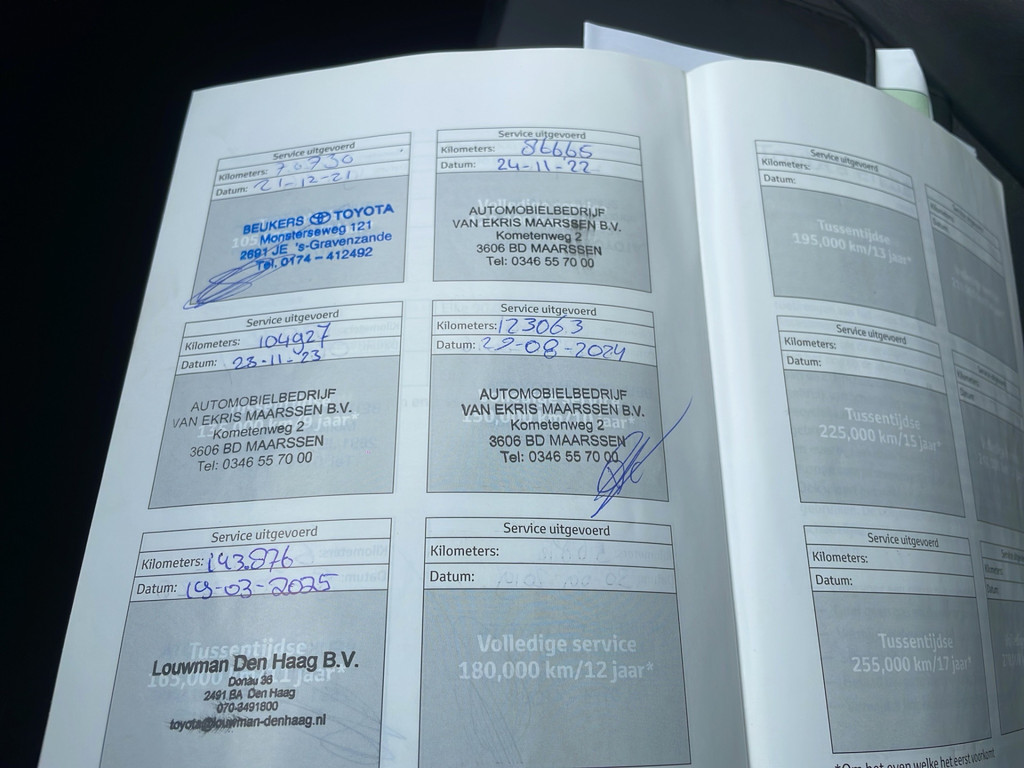 Service uitgevoerd
Kilometers:
Datum: 21-12-21
BEUKERS TOYOTA
Monsterseweg 121
2691 JE 's-Gravenzande
Tel. 0174 - 412492
Service uitgevoerd
Kilometers: 86665
Datum: 24-11-22
Volledige service
AUTOMOBIELBEDRIJF
VAN EKRIS MAARSSEN B.V.
Kometenweg 2
3606 BD MAARSSEN
Tel: 0346 55 70 00
Service uitgevoerd
Kilometers: 104927
Datum: 23-11-23
AUTOMOBIELBEDRIJF
VAN EKRIS MAARSSEN B.V.
Kometenweg 2
3606 BD MAARSSEN
Tel: 0346 55 70 00
Service uitgevoerd
Kilometers: 123063
Datum: 29-08-2024
AUTOMOBIELBEDRIJF
VAN EKRIS MAARSSEN B.V.
Kometenweg 2
3606 BD MAARSSEN
Tel: 0346 55 70 00
Service uitgevoerd
Kilometers: 143.876
Datum: 19-03-2025
Tussentijdse
Louwman Den Haag B.V.
Donau 36
2491 BA Den Haag
070-3491800
toyota@louwman-denhaag.nl
Service uitgevoerd
Kilometers:
Datum:
Volledige service
180,000 km/12 jaar*
Service uitgevoerd
Kilometers:
Datum:
Tussentijdse
195,000 km/13 jaar*
Service uitgevoerd
Kilometers:
Datum:
Tussentijdse
225,000 km/15 jaar*
Service uitgevoerd
Kilometers:
Datum:
Tussentijdse
255,000 km/17 jaar*
Kilometers:
Datum:
Kilometers:
Datum:
Kilometers:
Datum:
*Om het even welke het eerst voorkomt